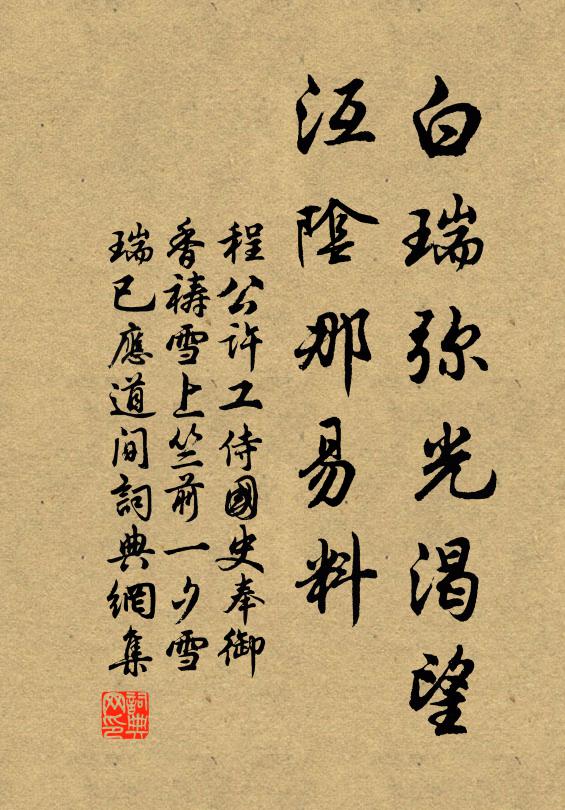 白瑞弥光渴望
沍陰那易料
程公許工侍國史奉御
香禱雪上竺前一夕雪
瑞已應道间詞典網集
詞典网印